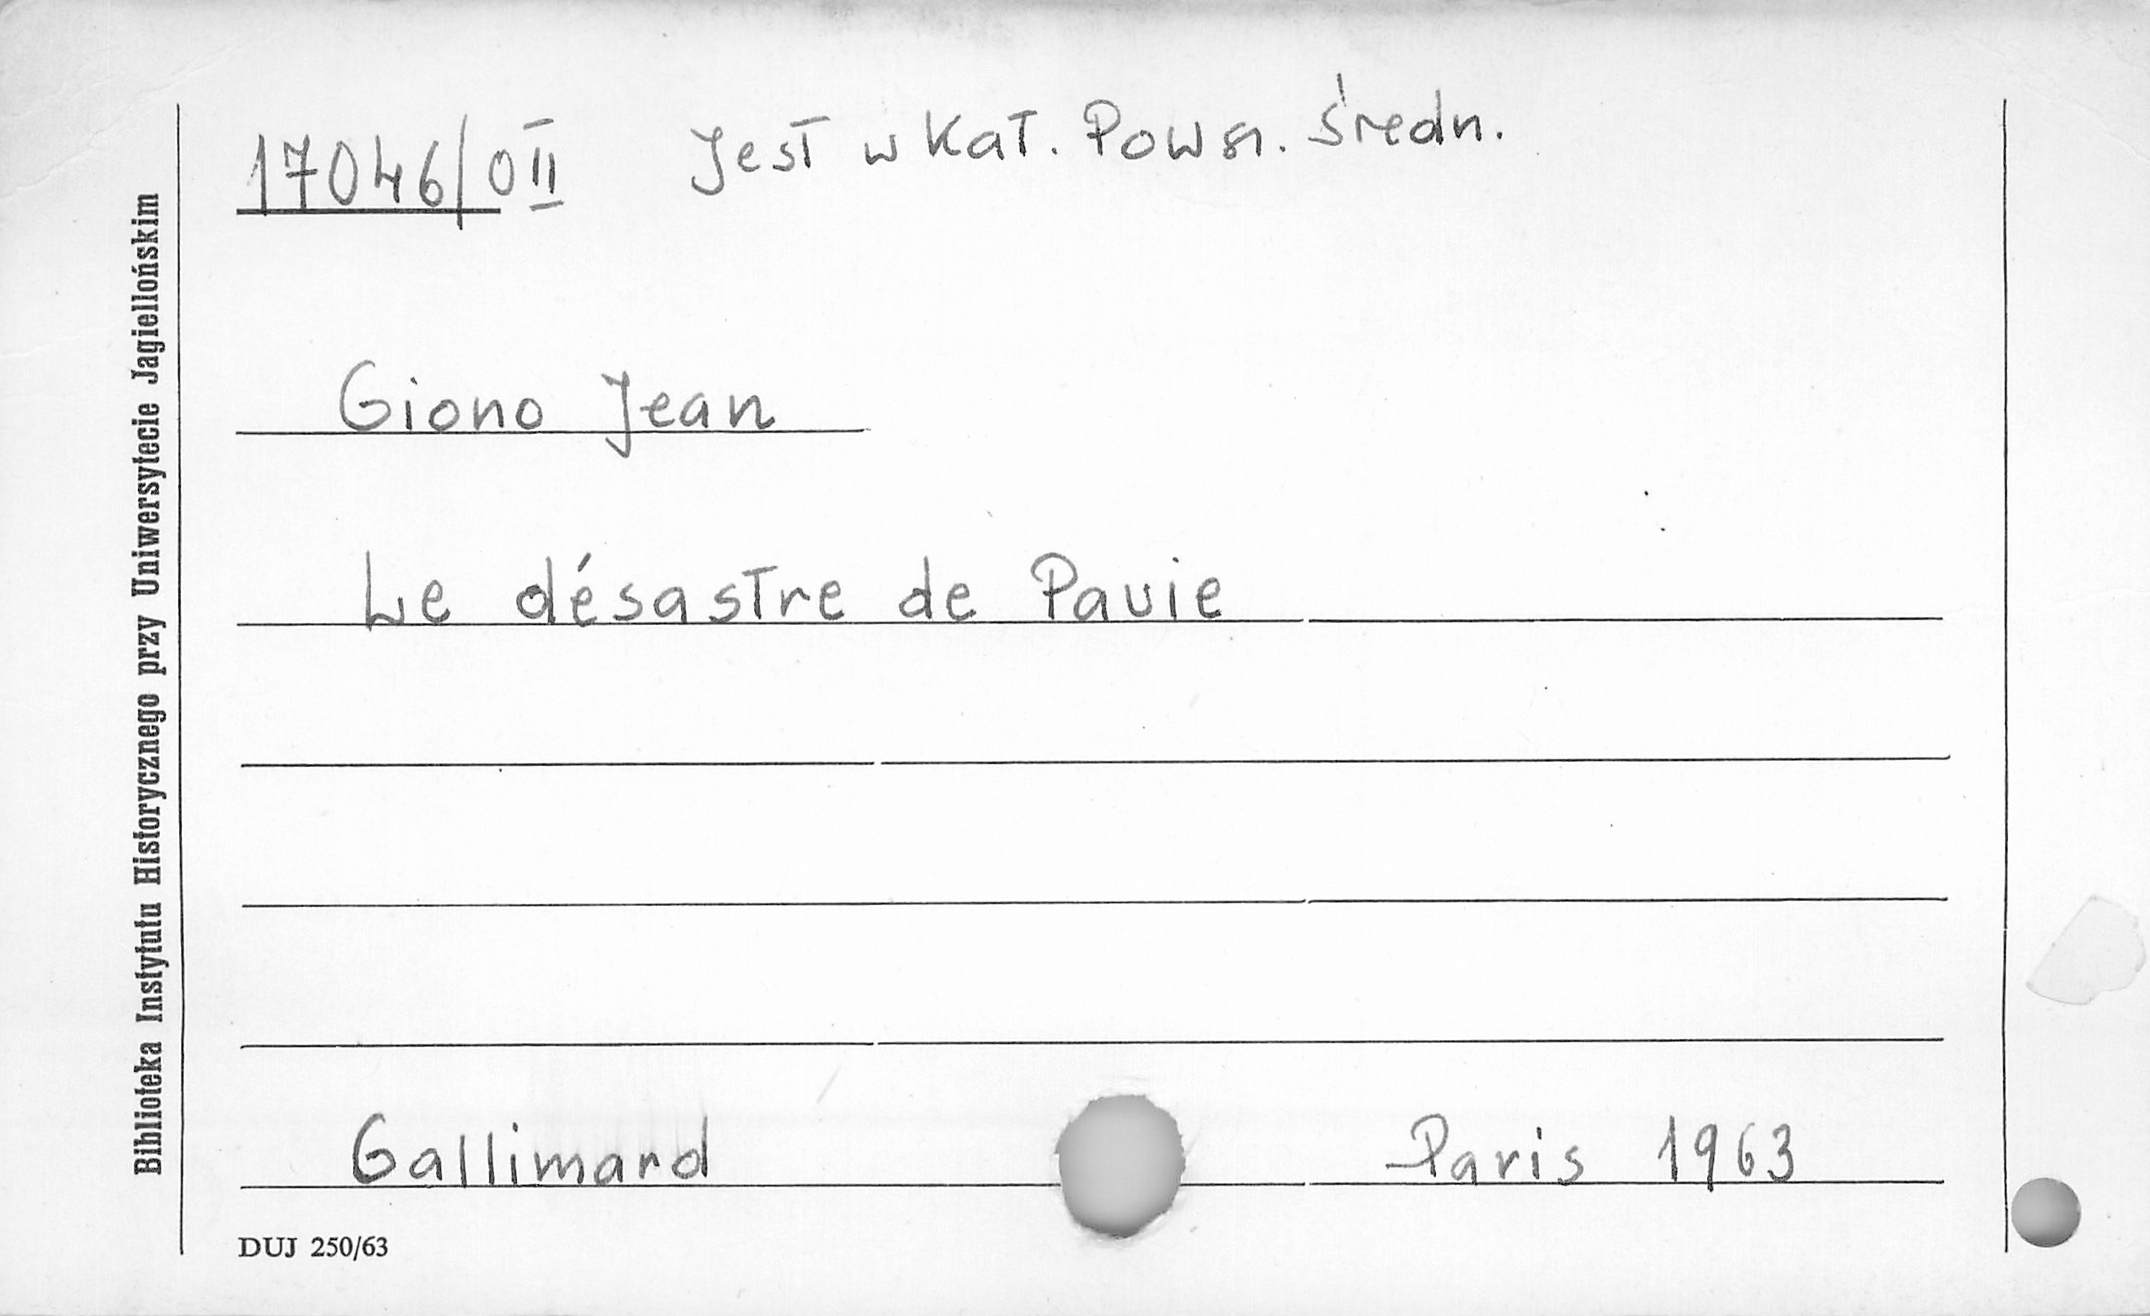 17046/0II Jest w Kat. Powsz. średn.
Giono Jean
Le désastre de Pavie
Gallimard Paris 1963
DUJ 250/63
Biblioteka Instytutu Historycznego przy Uniwersytecie Jagiellońskim